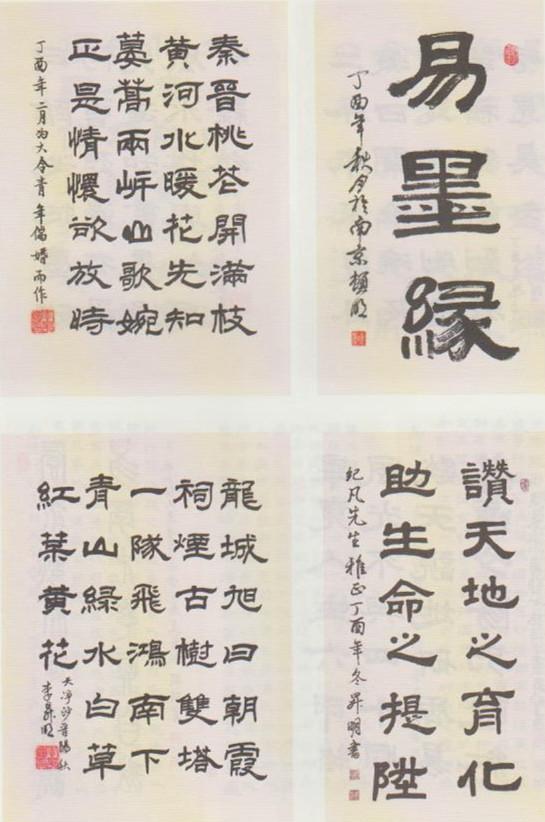 易墨緣
丁酉年秋月於南京
秦晉桃芲開滿枝
黃河水暖花先知
蔞蒿兩岍山歌婉
正是情懷欲放時
丁酉年二月為大令青年婚而作
讚天地之育化
助生命之提陞
紀凡先生雅正丁酉年冬昇明書
龍城旭日朝霞
祠煙古樹雙塔
一隊飛鴻南下
青山綠水白草
紅葉黃花
天淨沙晉陽秋
李昇明